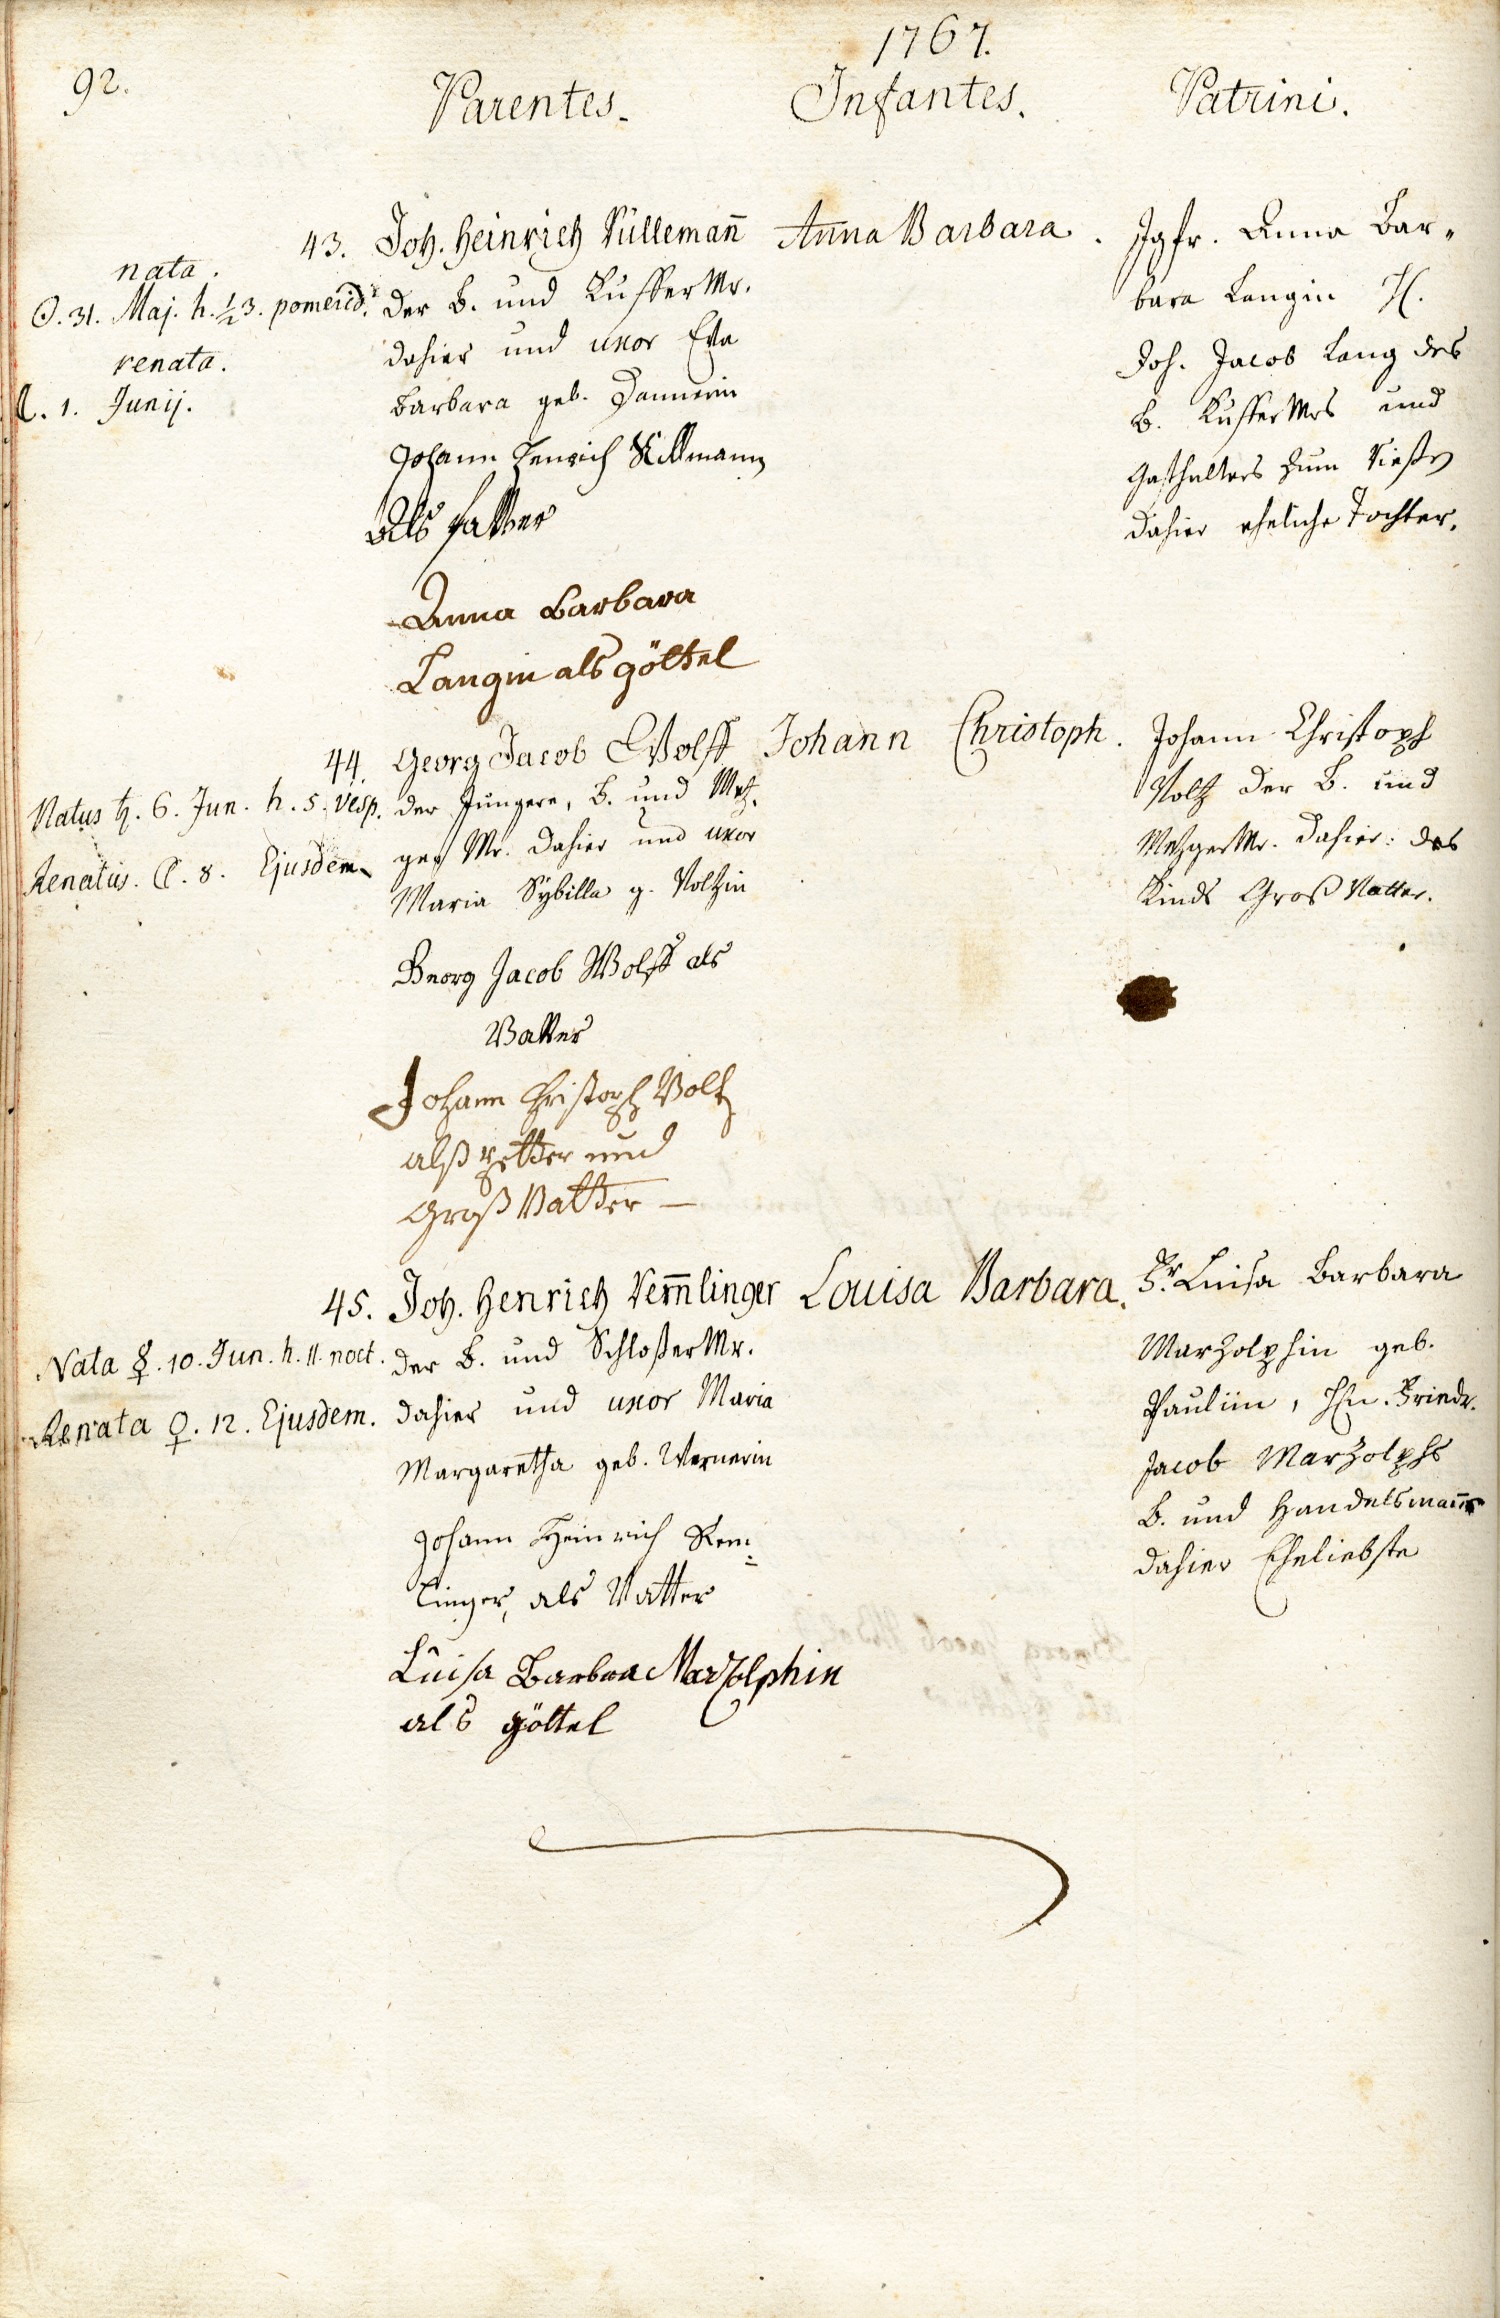 92.
1767.
Parentes.
Infantes.
Patrini.
43.
nata.
☉. 31. Maj. h. ½3. pomerid.
renata.
☾. 1. Junij.
Joh. Heinrich Küllemañ
der B. und Kuffer Mr.
dahier und uxor Eva
Barbara geb. Dannerin
Johann Henrich Küllmann
als Vatter
Anna Barbara
Langin als göttel
Anna Barbara.
Jgfr. Anna Bar-
bara Langin H.
Joh. Jacob Lang des
B. Kuffer Mrs und
Gasthalters zum
dahier eheliche Tochter.
44.
Natus ♄. 6. Jun. h. 5. vesp.
Renatus. ☾. 8. Ejusdem.
Georg Jacob Wolff
der Jüngere, B. und Metz-
ger Mr. dahier und uxor
Maria Sÿbilla g. Voltzin
Georg Jacob Wolff als
Vatter
Johann Christoph Voltz
alß Petter und
Groß Vatter —
Johann Christoph.
Johann Christoph
Voltz der B. und
Metzger Mr. dahier: des
Kinds Groß Vatter.
45.
Nata ☿. 10. Jun. h. 11. noct.
Renata ♀. 12. Ejusdem.
Joh. Henrich Rem̄linger
der B. und Schloßer Mr.
dahier und uxor Maria
Margaretha geb. Wernerin
Johann Heinrich Rem-
linger, als Vatter
Luisa Barbra Marzolphin
als göttel
Louisa Barbara.
Fr. Luisa Barbara
Marzolphin geb.
Paulin, Hn. Friedr.
Jacob Marzolphs
B. und Handelsmañs
dahier Eheliebste